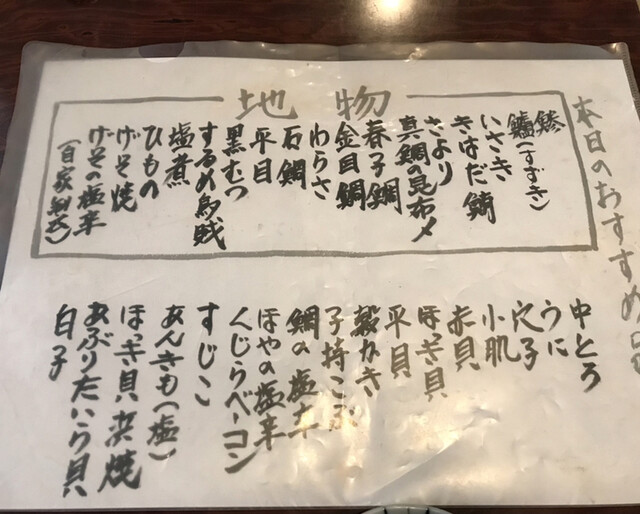 本日のおすすめ品
地物
鯵
鱸(すずき)
いさき
きはだ鮪
さより
真鯛の昆布〆
春子鯛
金目鯛
わらさ
石鯛
平目
黒むつ
するめ烏賊
塩煮
ひもの
げそ焼
げその塩辛
(自家製)
中とろ
うに
穴子
小肌
赤貝
ほっき貝
平貝
殻かき
子持こぶ
鯛の塩辛
ほやの塩辛
くじらベーコン
すじこ
あんきも(塩)
ほっき貝浜焼
あぶりたいら貝
白子